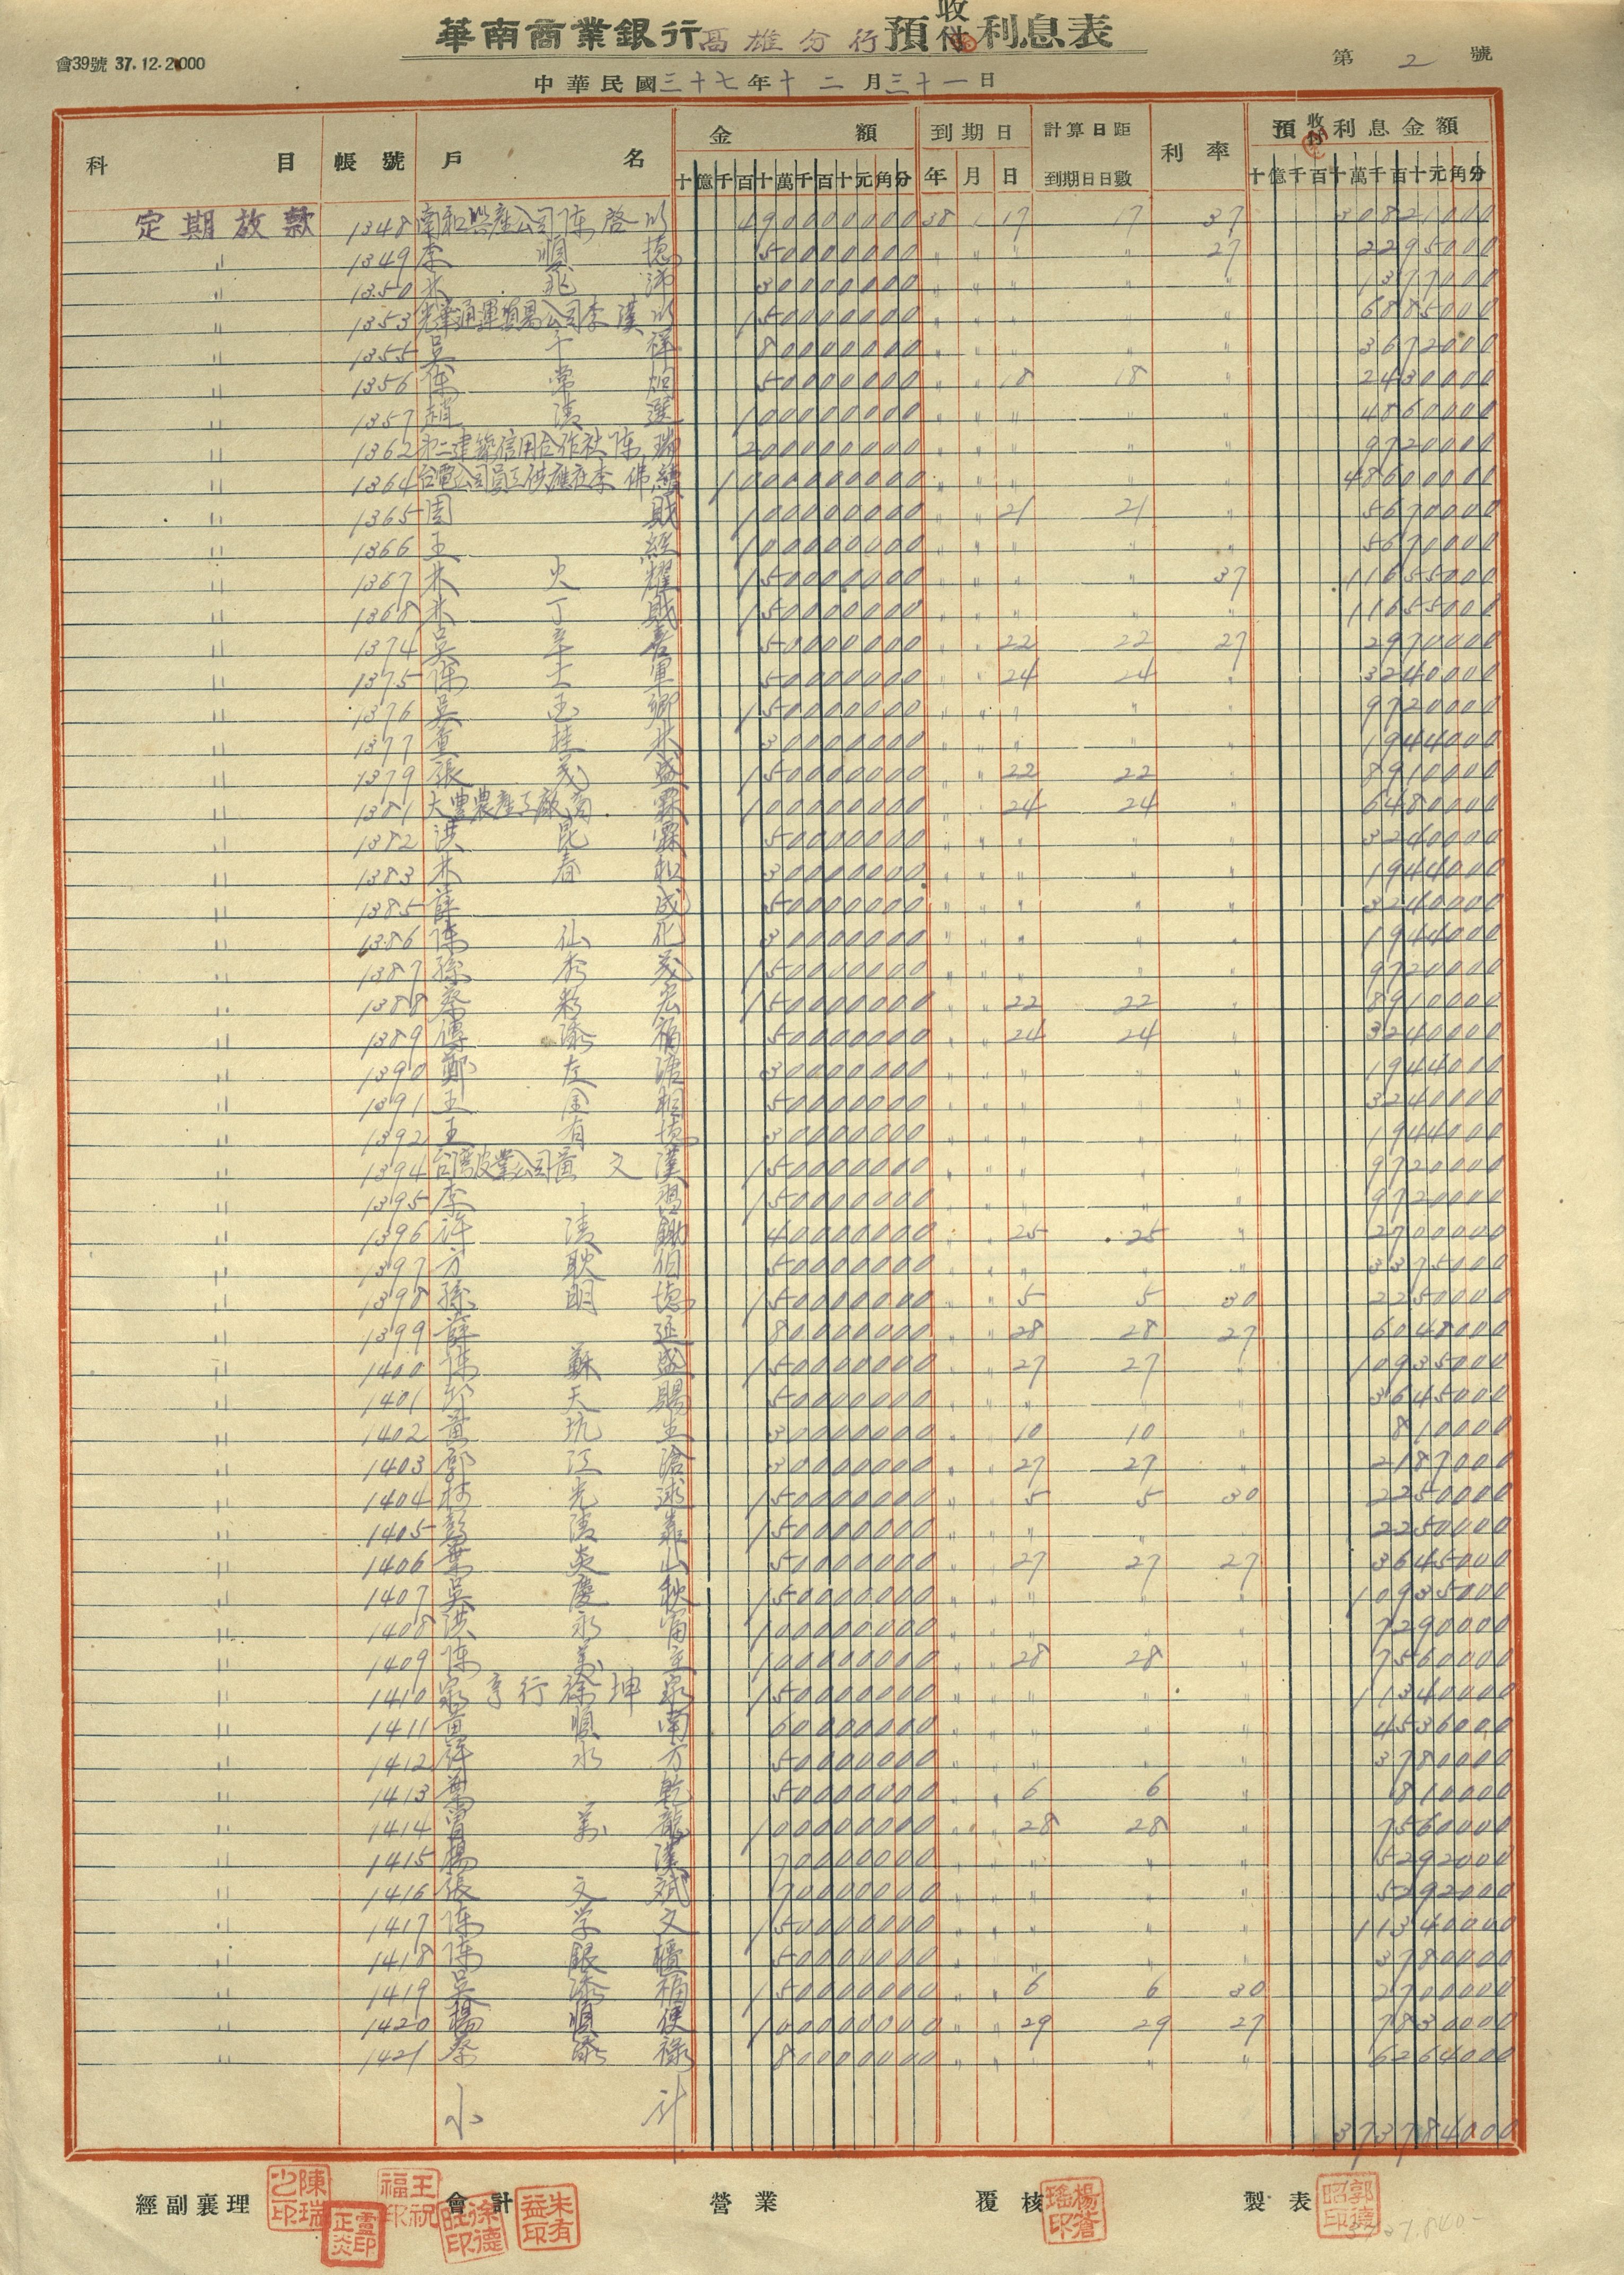 華南商業銀行高雄分行預收付利息表
會39號 37.12.2,000
第 2 號
中華民國三十七年十二月三十一日
科目 帳號 戶名 金額 到期日 計算日距到期日日數 利率 預收付利息金額
十億千百十萬千百十元角分 年 月 日 十億千百十萬千百十元角分
定期放款 1348 南和興產公司陳啓 4900000000 38 1 17 17 37 30821000
〃 1349 李順德 500000000 〃 〃 〃 〃 27 2295000
〃 1350 300000000 〃 〃 〃 〃 〃 1377000
〃 1353 光華通運貿易公司李漢 1500000000 〃 〃 〃 〃 〃 6885000
〃 1355 吳 800000000 〃 〃 〃 〃 〃 3672000
〃 1356 陳常 500000000 〃 〃 18 18 〃 2430000
〃 1357 趙清選 1000000000 〃 〃 〃 〃 〃 4860000
〃 1362 第二建築信用合作社陳瑞 2000000000 〃 〃 〃 〃 〃 9720000
〃 1364 台電公司員工供應社李佛續 10000000000 〃 〃 〃 〃 〃 48600000
〃 1365 周財 1000000000 〃 〃 21 21 〃 5670000
〃 1366 王經 1000000000 〃 〃 〃 〃 〃 5670000
〃 1367 林火耀 1500000000 〃 〃 〃 〃 37 11655000
〃 1368 林丁財 1500000000 〃 〃 〃 〃 〃 11655000
〃 1374 吳 500000000 〃 〃 22 22 27 2970000
〃 1375 陳土軍 500000000 〃 〃 24 24 〃 3240000
〃 1376 吳玉卿 1500000000 〃 〃 〃 〃 〃 9720000
〃 1377 董桂林 300000000 〃 〃 〃 〃 〃 1944000
〃 1379 張茂盛 1500000000 〃 〃 22 22 〃 8910000
〃 1381 大豐農產工廠商霖 1000000000 〃 〃 24 24 〃 6480000
〃 1382 洪昆霖 500000000 〃 〃 〃 〃 〃 3240000
〃 1383 林春和 300000000 〃 〃 〃 〃 〃 1944000
〃 1385 薛成 500000000 〃 〃 〃 〃 〃 3240000
〃 1386 陳仙化 300000000 〃 〃 〃 〃 〃 1944000
〃 1387 孫秀茂 1500000000 〃 〃 〃 〃 〃 9720000
〃 1388 蔡彩宏 1500000000 〃 〃 22 22 〃 8910000
〃 1389 傅添福 500000000 〃 〃 24 24 〃 3240000
〃 1390 鄭左 300000000 〃 〃 〃 〃 〃 1944000
〃 1391 王金 500000000 〃 〃 〃 〃 〃 3240000
〃 1392 王有德 300000000 〃 〃 〃 〃 〃 1944000
〃 1394 台灣皮業公司黃文漢 1500000000 〃 〃 〃 〃 〃 9720000
〃 1395 李 1500000000 〃 〃 〃 〃 〃 9720000
〃 1396 許清 400000000 〃 〃 25 25 〃 2700000
〃 1397 方耿伯 500000000 〃 〃 〃 〃 〃 3375000
〃 1398 孫明德 1500000000 〃 〃 5 5 30 2250000
〃 1399 薛延 800000000 〃 〃 28 28 27 6048000
〃 1400 陳蘇盛 1500000000 〃 〃 27 27 〃 10935000
〃 1401 天賜 500000000 〃 〃 〃 〃 〃 3645000
〃 1402 黃坑生 300000000 〃 〃 10 10 〃 810000
〃 1403 郭江滄 300000000 〃 〃 27 27 〃 2187000
〃 1404 林光 1500000000 〃 〃 5 5 30 2250000
〃 1405 清 1500000000 〃 〃 〃 〃 〃 2250000
〃 1406 葉炎山 500000000 〃 〃 27 27 27 3645000
〃 1407 吳慶秋 1500000000 〃 〃 〃 〃 〃 10935000
〃 1408 洪永甯 1000000000 〃 〃 〃 〃 〃 7290000
〃 1409 陳萬 1000000000 〃 〃 28 28 〃 7560000
〃 1410 泉亨行徐坤泉 1500000000 〃 〃 〃 〃 〃 11340000
〃 1411 黃順南 600000000 〃 〃 〃 〃 〃 4536000
〃 1412 許水方 500000000 〃 〃 〃 〃 〃 3780000
〃 1413 乾 500000000 〃 〃 6 6 〃 810000
〃 1414 曾萬龍 1000000000 〃 〃 28 28 〃 7560000
〃 1415 楊漢 700000000 〃 〃 〃 〃 〃 5292000
〃 1416 張文斌 700000000 〃 〃 〃 〃 〃 5292000
〃 1417 陳学文 1500000000 〃 〃 〃 〃 〃 11340000
〃 1418 陳銀 500000000 〃 〃 〃 〃 〃 3780000
〃 1419 吳添福 1500000000 〃 〃 6 6 30 2700000
〃 1420 楊順便 1000000000 〃 〃 29 29 27 7830000
〃 1421 蔡 祿 800000000 〃 〃 〃 〃 〃 6264000
小計 373784000
經副襄理 會計 營業 覆核 製表
陳瑞 王祝福印 徐德旺印 朱有益印 楊蒼瑤印 郭德昭印